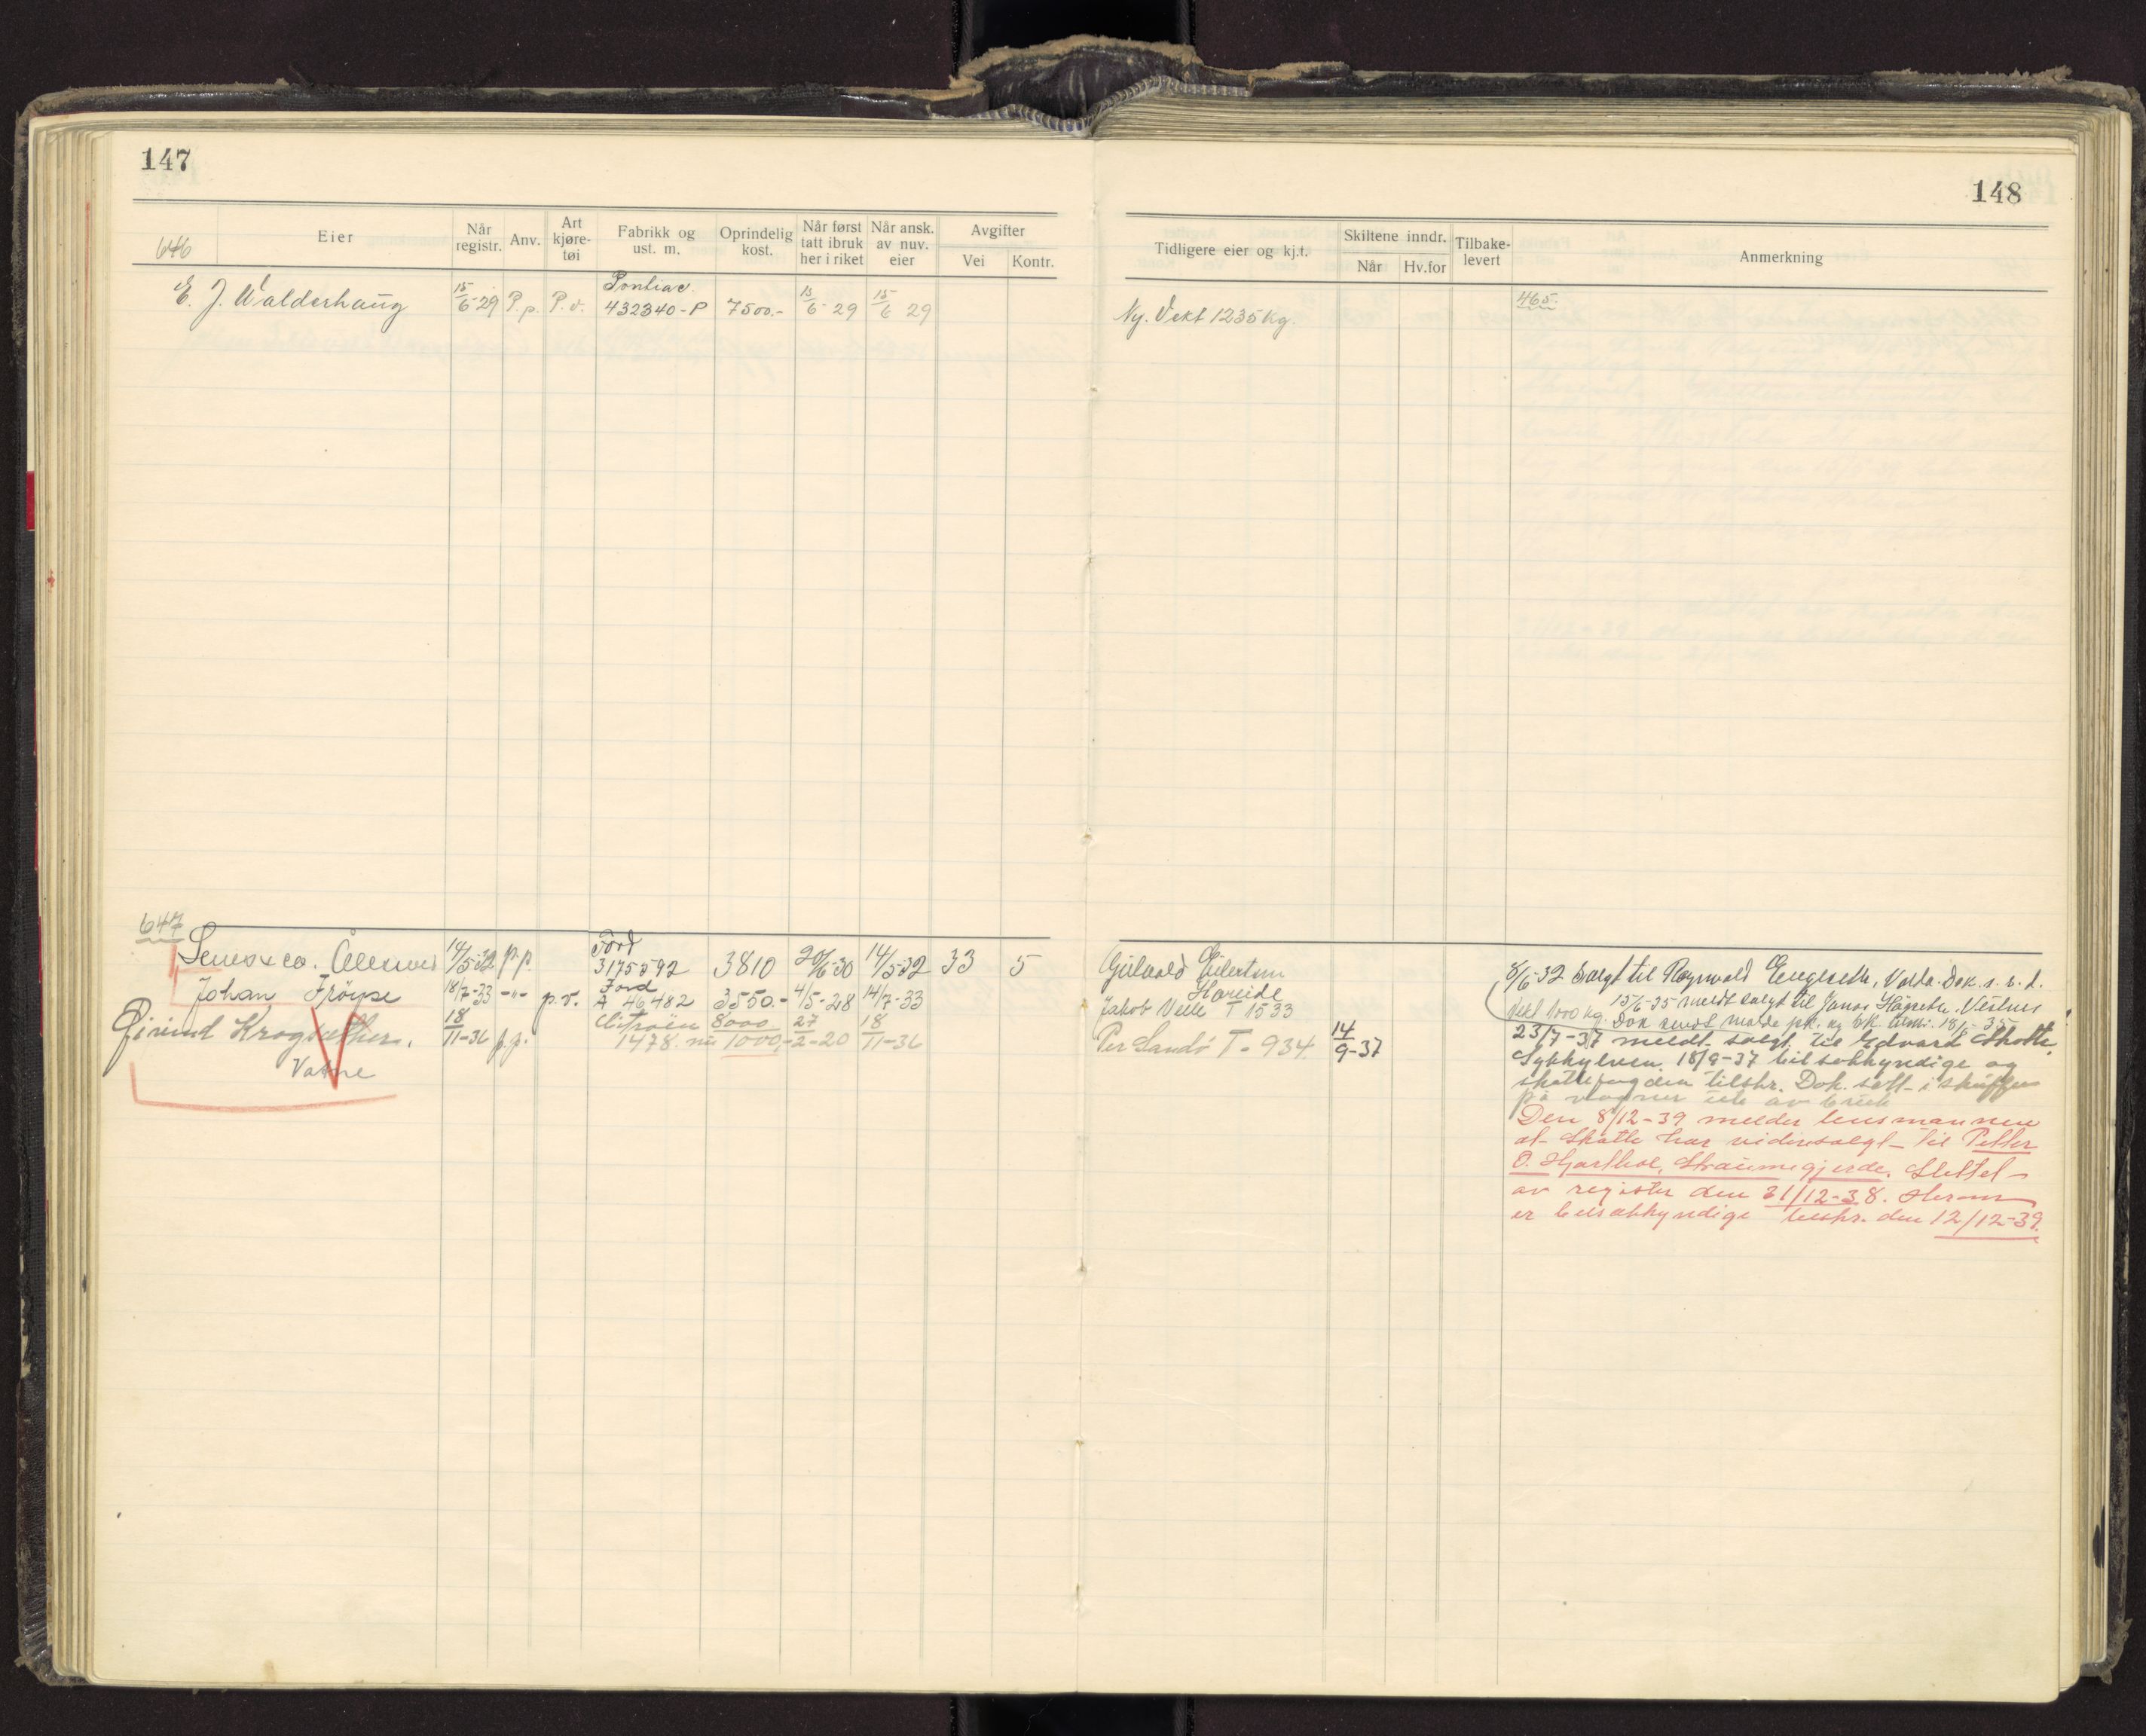 147
148
646
Eier
Når registr.
Anv.
Art kjøre-tøi
Fabrikk og ust. m.
Oprindelig kost.
Når først tatt ibruk her i riket
Når ansk. av nuv. eier
Avgifter
Vei
Kontr.
Tidligere eier og kj.t.
Skiltene inndr.
Når
Hv.for
Tilbake-levert
Anmerkning
E. J. Walderhaug 15/6-29 P.p. P.v. Pontiac 432340-P 7500.- 15/6-29 15/6 29
Ny. Vekt 1235 kg.
465.
647
14/5-32 p.p. Ford 3175592 3810 20/6-30 14/5-32 33 5
Eilertsen Hareide
8/6-32 Solgt til Engeseth, Volda. Dok. s. s. d.
Johan 18/7-33 -"- p.v. Ford A 46482 3550.- 4/5-28 14/7-33
Jakob Velle T 1533
Vekt 1000 kg. 15/6-35 meldt solgt til Jonas
Dok sendt Molde pk. og 18/6-35
Eivind Krogsæther. 18/11-36 p.p. Citroën 8000 27/2-20 18/11-36
1478. nu 1000,-
Vatne
Per Sandö T-934 14/9-37
23/7-37 meldt solgt til Edvard Skotte,
Sykkylven. 18/9-37 bilsakkyndige og
skattefogden tilskr. Dok. satt i skuffen
på vogner ute av bruk
Den 8/12-39 melder lensmannen
at Skotte har videresolgt til Petter
O. Hjorthol, Straumegjerde. Slettet
av register den 31/12-38. Herom
er bilsakkyndige tilskr. den 12/12-39.